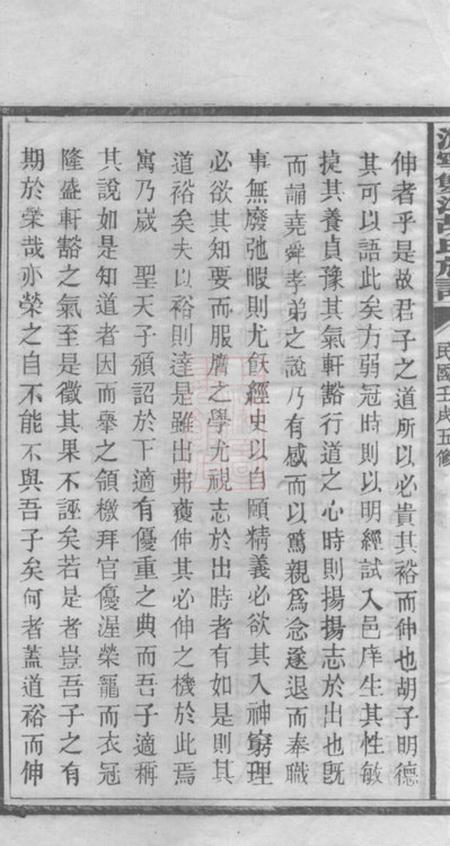 胡氏族譜
民國壬戌五修
伸者乎是故君子之道所以必貴其裕而伸也胡子明德
其可以語此矣方弱冠時則以明經試入邑庠生其性敏
捷其養貞豫其氣軒豁行道之心時則揚揚志於出也旣
而誦堯舜孝弟之說乃有感而以篤親爲念遂退而奉職
事無廢弛暇則尤飫經史以自頤精義必欲其入神窮理
必欲其知要而服膺之學尤視志於出時者有如是則其
道裕矣夫以裕則達是雖出弗蔓伸其必伸之機於此焉
寓乃嵗 聖天子頒詔於下適有優重之典而吾子適稱
其說如是知道者因而舉之領檄拜官優渥榮寵而衣冠
隆盛軒豁之氣至是徵其果不誣矣若是者豈吾子之有
期於榮哉亦榮之自不能不與吾子矣何者蓋道裕而伸